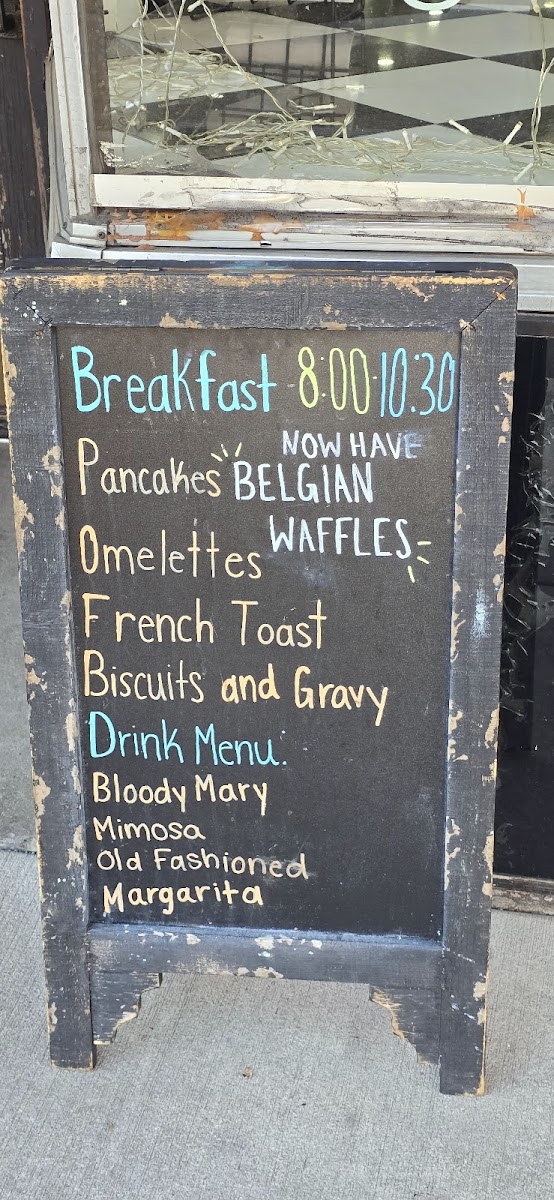 Breakfast 8:00-10:30
NOW HAVE
Pancakes BELGIAN
WAFFLES
Omelettes
French Toast
Biscuits and Gravy
Drink Menu.
Bloody Mary
Mimosa
Old Fashioned
Margarita